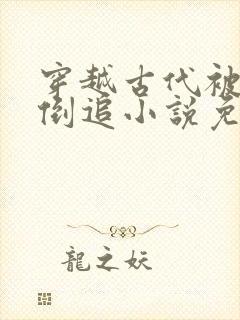 穿越古代被
倒追小說免
龍之妖